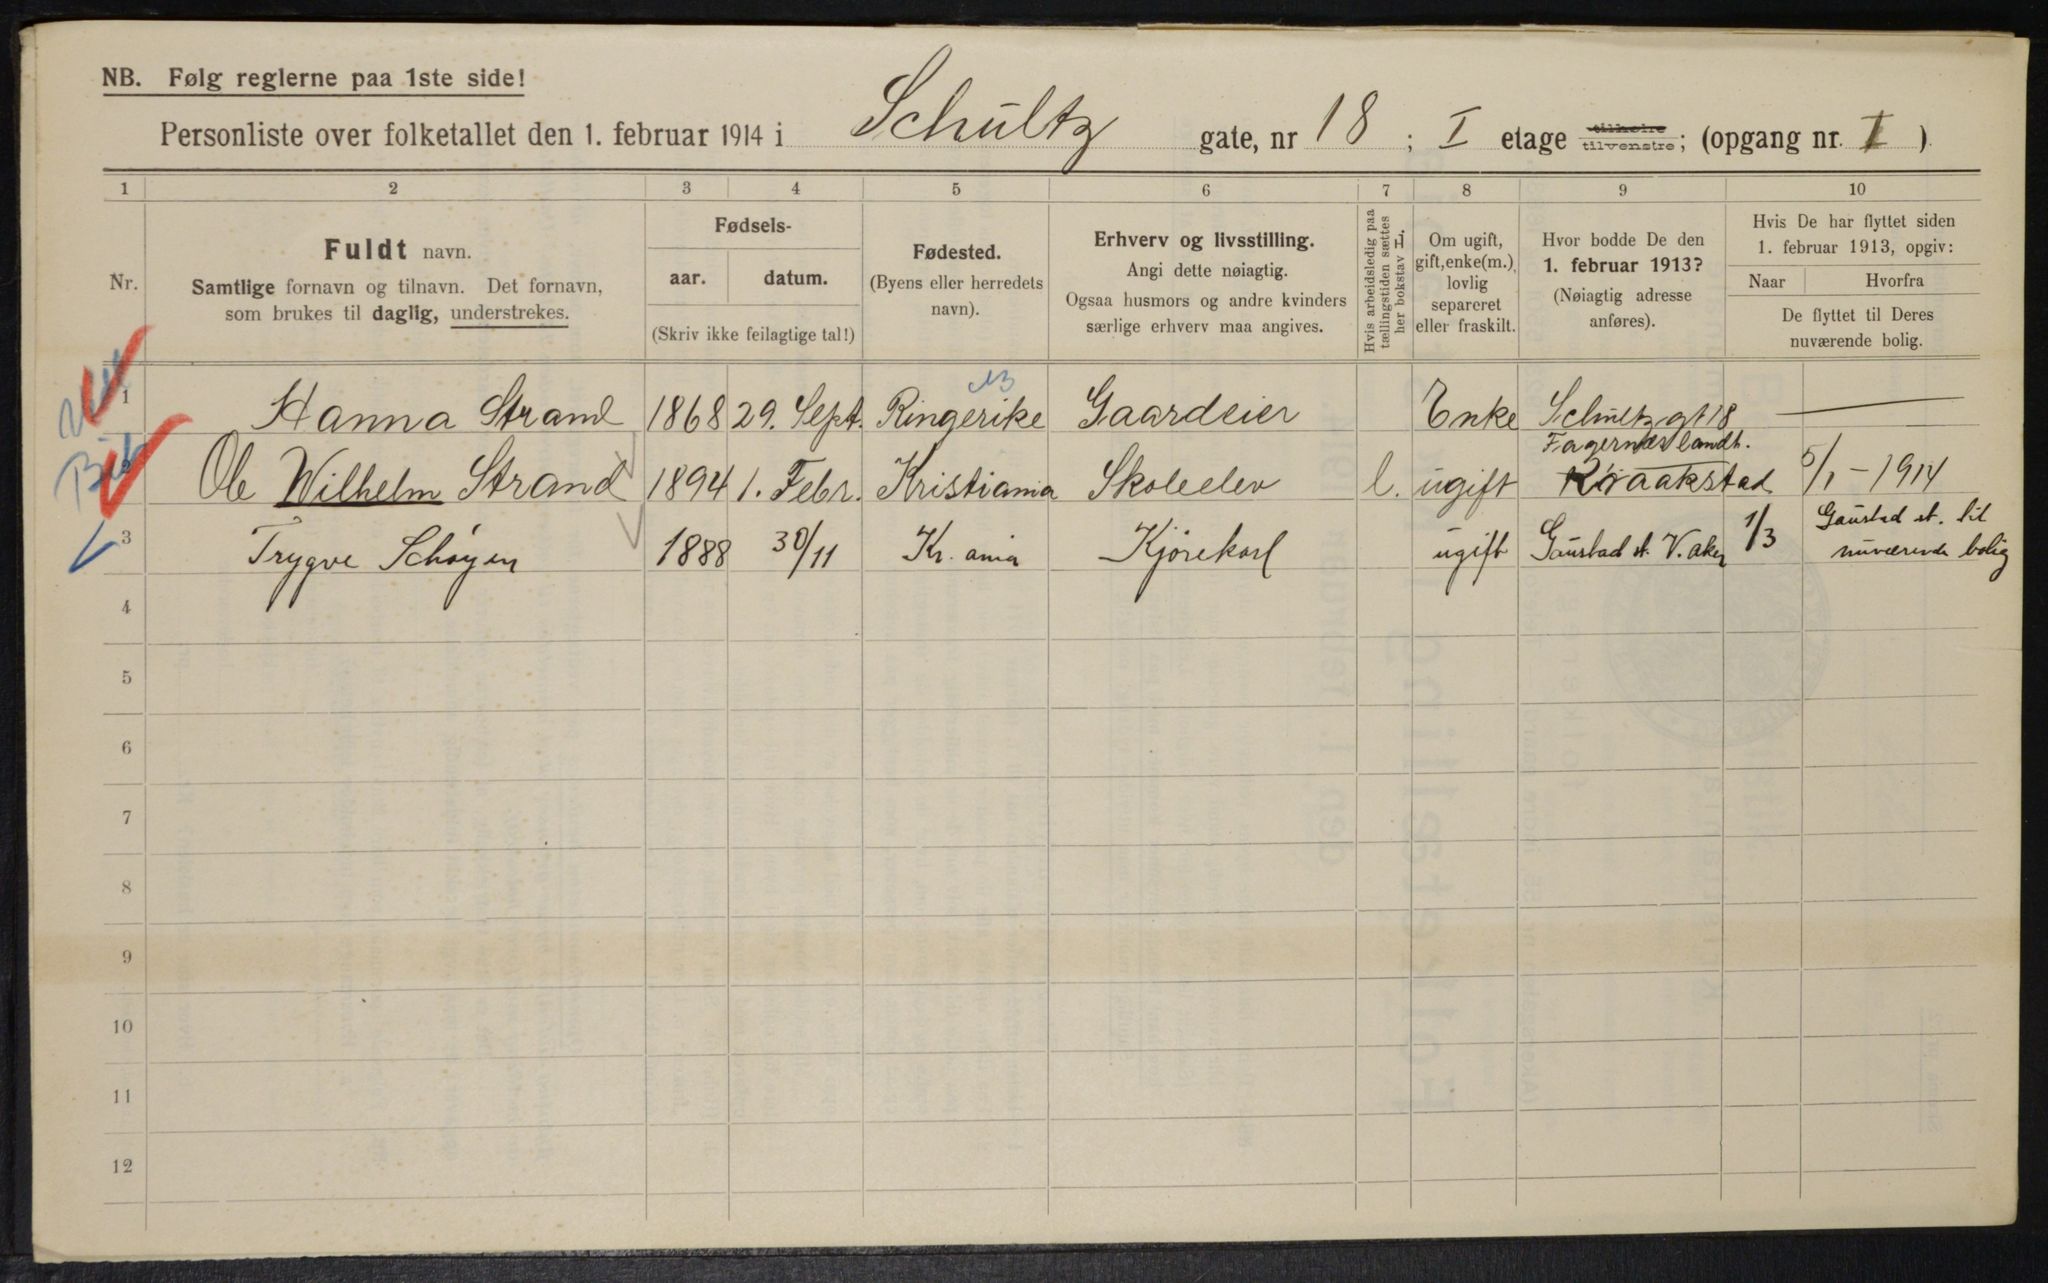 NB. Følg reglerne paa 1ste side!
Personliste over folketallet den 1. februar 1914 i Schultz gate, nr 18 ; I etage tilhøire tilvenstre; (opgang nr. I )
1 2 3 4 5 6 7 8 9 10
Nr.
Fuldt navn.
Samtlige fornavn og tilnavn. Det fornavn,
som brukes til daglig, understrekes.
Fødsels-
aar. datum.
(Skriv ikke feilagtige tal!)
Fødested.
(Byens eller herredets
navn).
Erhverv og livsstilling.
Angi dette nøiagtig.
Ogsaa husmors og andre kvinders
særlige erhverv maa angives.
Hvis arbeidsledig paa
tællingstiden sættes
her bokstav L.
Om ugift,
gift, enke(m.),
lovlig
separeret
eller fraskilt.
Hvor bodde De den
1. februar 1913?
(Nøiagtig adresse
anføres).
Hvis De har flyttet siden
1. februar 1913, opgiv:
Naar Hvorfra
De flyttet til Deres
nuværende bolig.
1 Hanna Strand 1868 29. Sept. Ringerike Gaardeier Enke Schultzgt 18 —
2 Ole Wilhelm Strand 1894 1. Febr. Kristiania Skoleelev l. ugift Fagernæs landh. Kraakstad 5/1 - 1914
3 Trygve Schøyen 1888 30/11 Kr. ania Kjørekarl ugift Gaustad st. V. Aker 1/3 Gaustad st. til
nuværende bolig
4
5
6
7
8
9
10
11
12